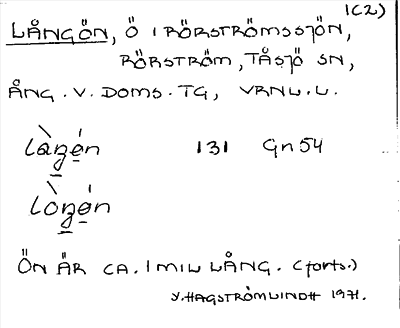 1(2)
LÅNGÖN, Ö I RÖRSTRÖMSSJÖN,
RÖRSTRÖM, TÅSJÖ SN,
ÅNG. V. DOMS. TG, VRNL. L.
131 Gn 54
ÖN ÄR CA. 1 MIL LÅNG. (forts.)
Y. HAGSTRÖMLINDH 1971.